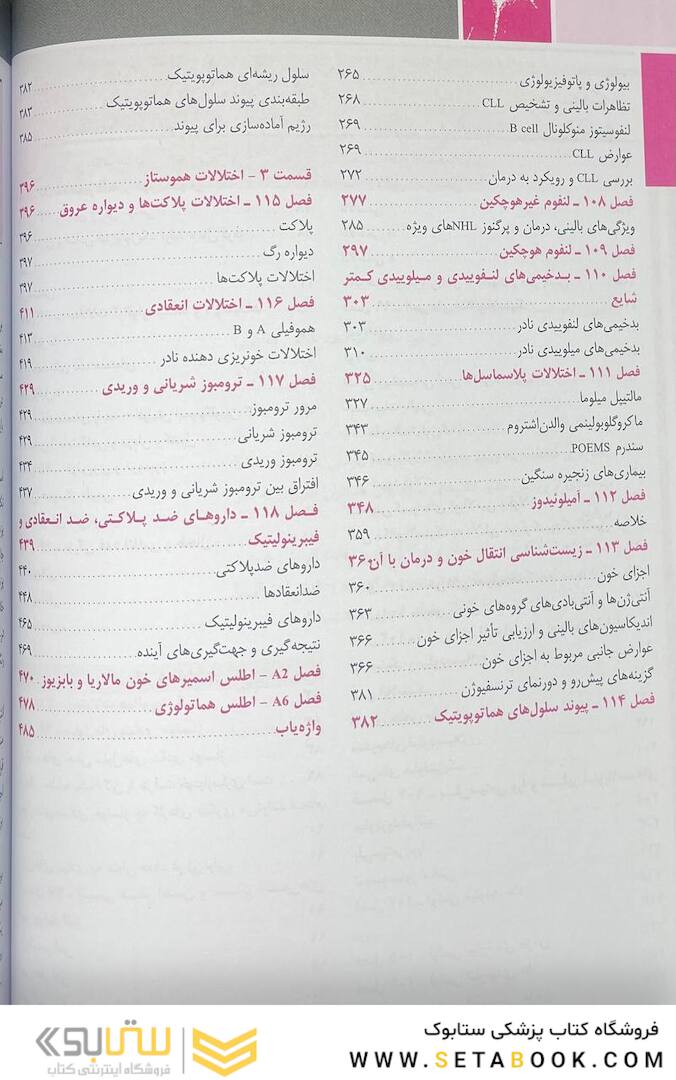 بیولوژی و پاتوفیزیولوژی ۲۶۵
تظاهرات بالینی و تشخیص CLL ۲۶۸
لنفوسیتوز منوکلونال B cell ۲۶۹
عوارض CLL ۲۶۹
بررسی CLL و رویکرد به درمان ۲۷۲
فصل ۱۰۸ ـ لنفوم غیرهوچکین ۲۷۷
ویژگی‌های بالینی، درمان و پرگنوز NHLهای ویژه ۲۸۵
فصل ۱۰۹ ـ لنفوم هوچکین ۲۹۷
فصل ۱۱۰ ـ بدخیمی‌های لنفوییدی و میلوییدی کمتر
شایع ۳۰۳
بدخیمی‌های لنفوییدی نادر ۳۰۳
بدخیمی‌های میلوییدی نادر ۳۱۰
فصل ۱۱۱ ـ اختلالات پلاسماسل‌ها ۳۲۵
مالتیپل میلوما ۳۲۷
ماکروگلوبولینمی والدن‌اشتروم ۳۴۳
سندرم POEMS ۳۴۵
بیماری‌های زنجیره سنگین ۳۴۶
فصل ۱۱۲ ـ آمیلوئیدوز ۳۴۸
خلاصه ۳۵۹
فصل ۱۱۳ ـ زیست‌شناسی انتقال خون و درمان با آن ۳۶۰
اجزای خون ۳۶۰
آنتی‌ژن‌ها و آنتی‌بادی‌های گروه‌های خونی ۳۶۳
اندیکاسیون‌های بالینی و ارزیابی تأثیر اجزای خون ۳۶۶
عوارض جانبی مربوط به اجزای خون ۳۶۶
گزینه‌های پیش‌رو و دورنمای ترنسفیوژن ۳۸۱
فصل ۱۱۴ ـ پیوند سلول‌های هماتوپویتیک ۳۸۲
سلول ریشه‌ای هماتوپویتیک ۳۸۲
طبقه‌بندی پیوند سلول‌های هماتوپویتیک ۳۸۳
رژیم آماده‌سازی برای پیوند ۳۸۵
قسمت ۳ - اختلالات هموستاز ۳۹۶
فصل ۱۱۵ ـ اختلالات پلاکت‌ها و دیواره عروق ۳۹۶
پلاکت ۳۹۶
دیواره رگ ۳۹۷
اختلالات پلاکت‌ها ۳۹۷
فصل ۱۱۶ ـ اختلالات انعقادی ۴۱۱
هموفیلی A و B ۴۱۳
اختلالات خونریزی دهنده نادر ۴۱۹
فصل ۱۱۷ ـ ترومبوز شریانی و وریدی ۴۲۹
مرور ترومبوز ۴۲۹
ترومبوز شریانی ۴۲۹
ترومبوز وریدی ۴۳۴
افتراق بین ترومبوز شریانی و وریدی ۴۳۷
فصل ۱۱۸ ـ داروهای ضد پلاکتی، ضد انعقادی و
فیبرینولیتیک ۴۳۹
داروهای ضدپلاکتی ۴۴۰
ضدانعقادها ۴۴۸
داروهای فیبرینولیتیک ۴۶۵
نتیجه‌گیری و جهت‌گیری‌های آینده ۴۶۹
فصل A2 - اطلس اسمیرهای خون مالاریا و بابزیوز ۴۷۰
فصل A6 - اطلس هماتولوژی ۴۷۸
واژه‌یاب ۴۸۵
فروشگاه کتاب پزشکی ستابوک
WWW.SETABOOK.COM
ستابوک
فروشگاه اینترنتی کتاب